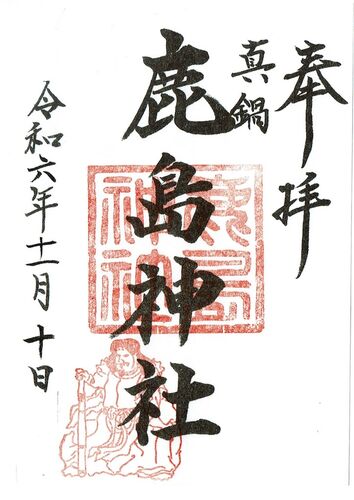 奉拝
真鍋
鹿島神社
令和六年十一月十日
鹿島
神社